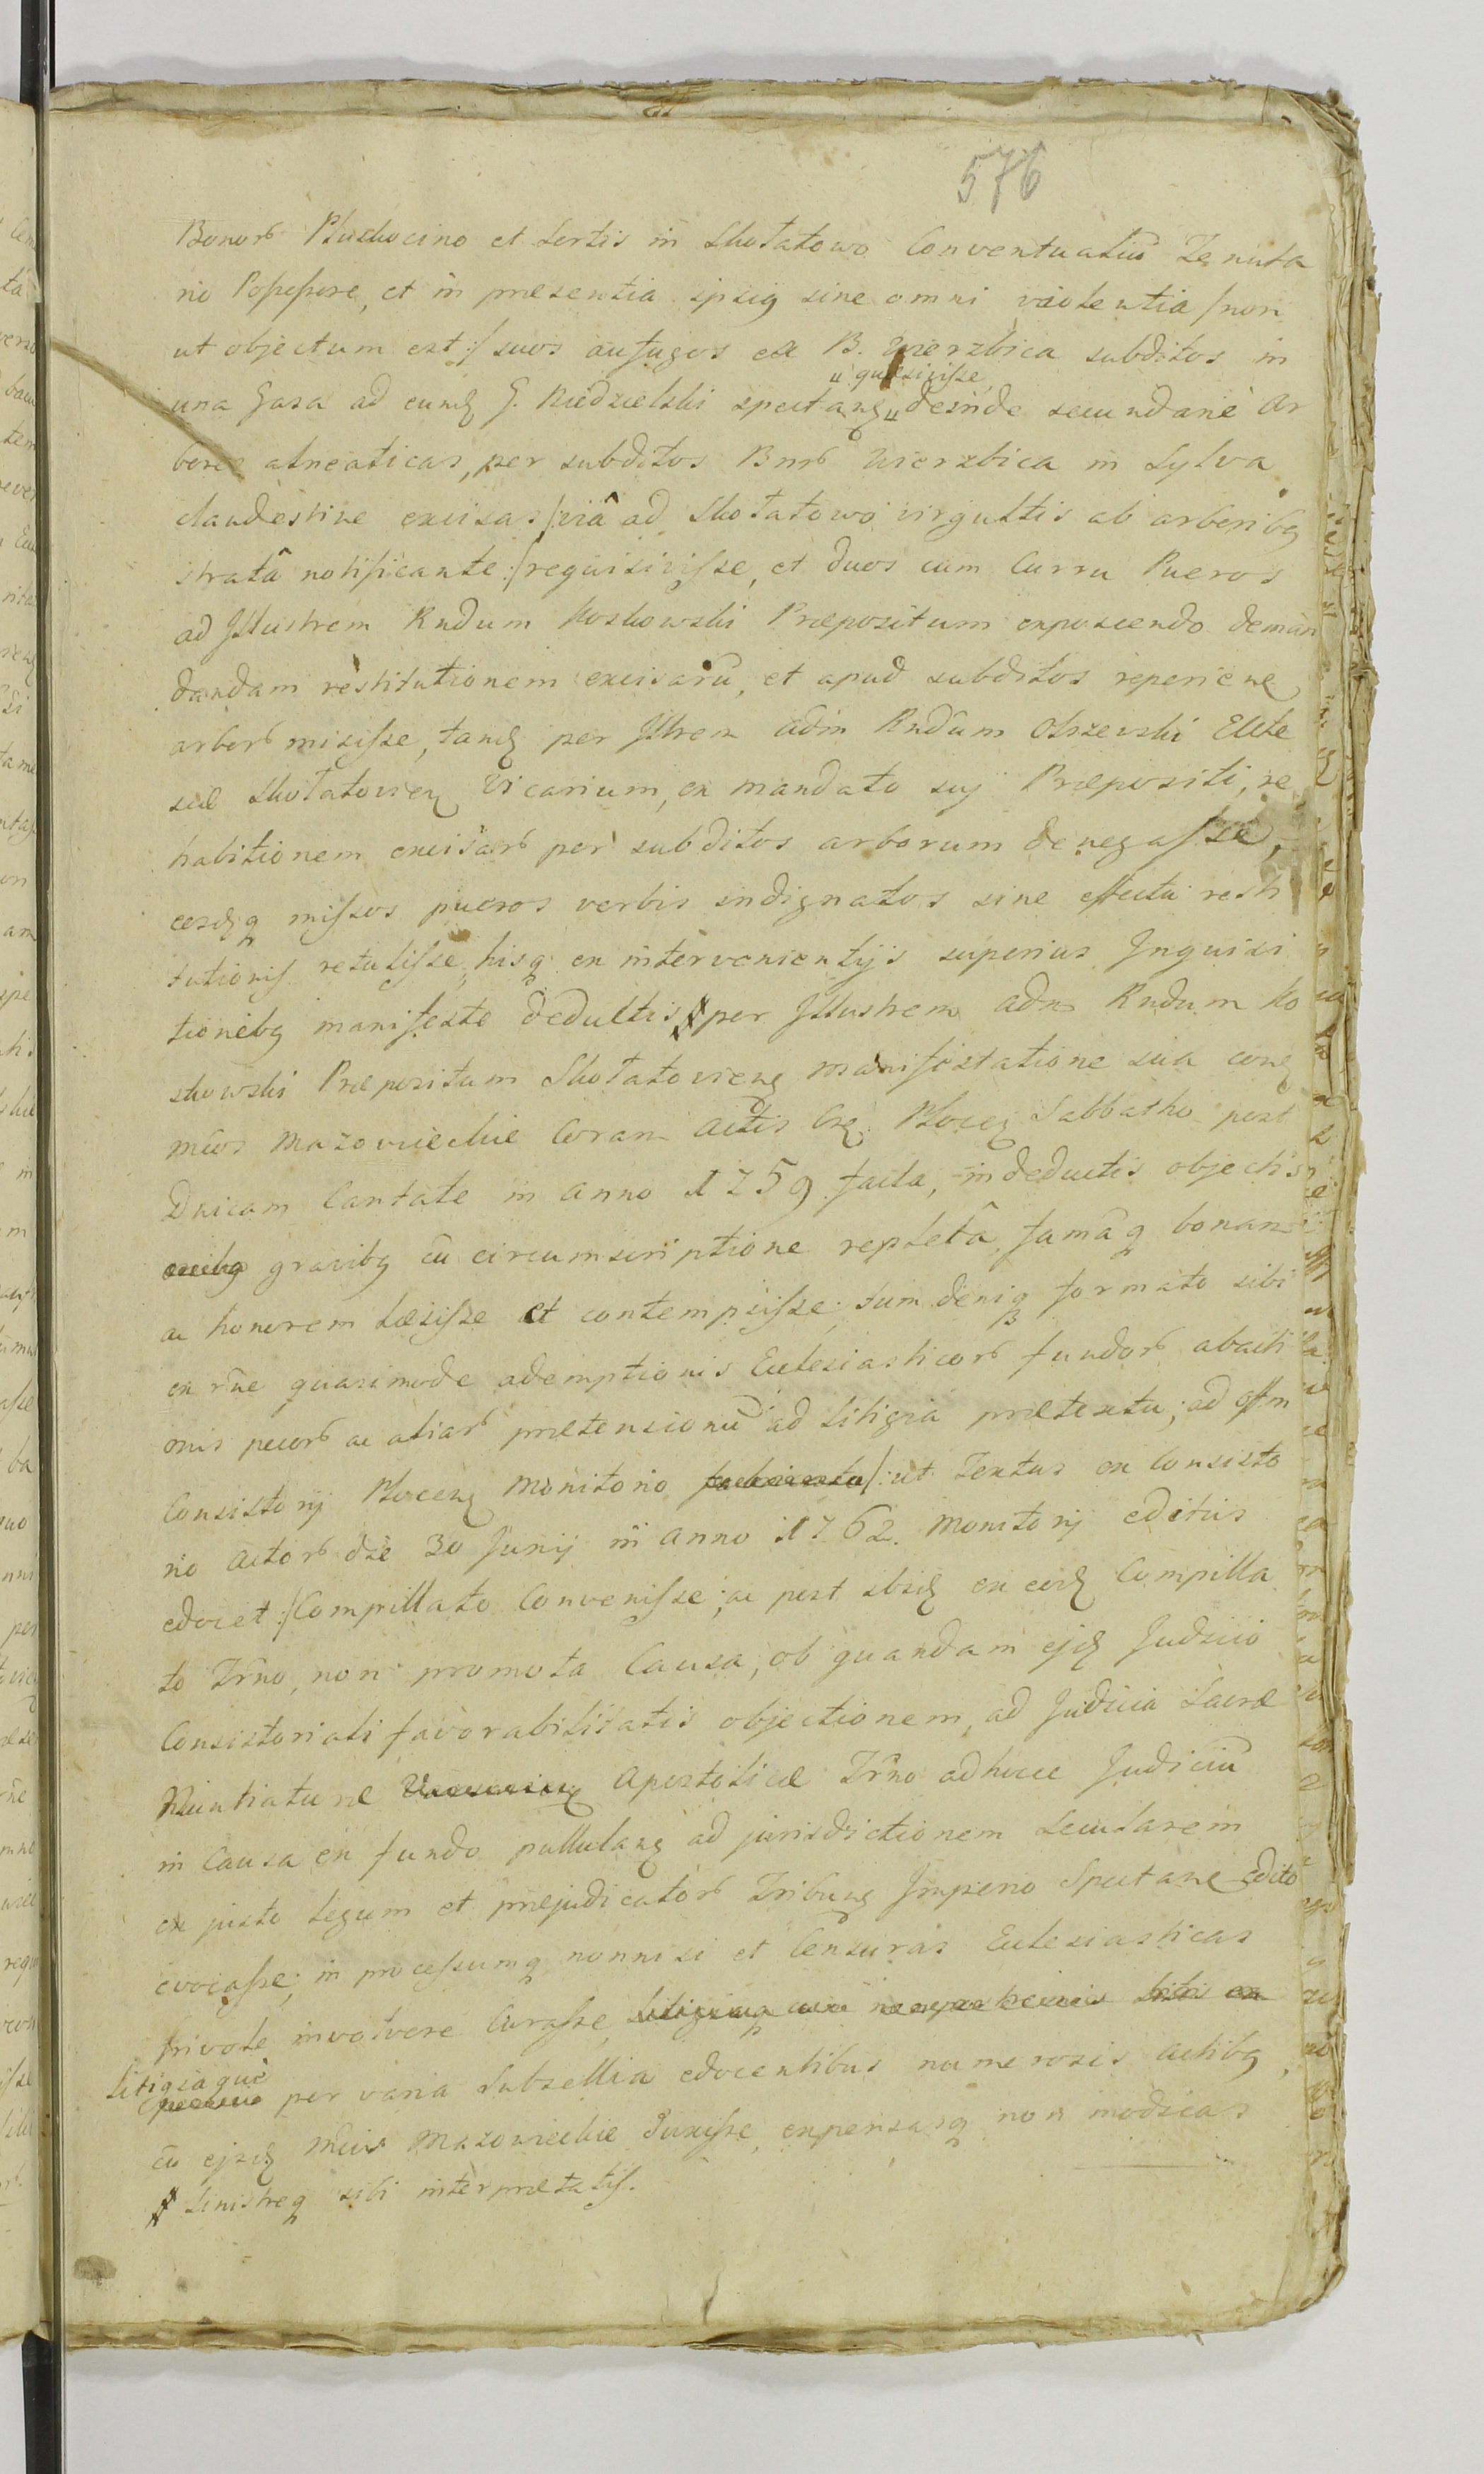 576
Bonorb Pluskocino et Sortis in Skołatowo Conventualiū Tenuta
rio Possessore, et in præsentia ipsiq sine omni violentia /non
ut objectum est:/ suos aufugos ex B. Wierzbica subditos in
" quæsivisse
una Gasa ad eundq G. Niedzielski spectanq " deinde secundarie Ar
bores alneaticas, per subditos Bnrb Wierzbica in Sylva
clandestine excisas /viâ ad Skołatowo virgultis ab arboribq
stratâ notificante:/ requisivisse, et duos cum Curru Pueros
ad Jllustrem Rndum Koskowski Præpositum exposcendo deman
dandam restitutionem excisarū, et apud subditos reperienq
arborb misisse, tandq per Jllrem adm Rndum Olszewski Eccle
siæ Skołatovienq Vicarium, ex mandato sui Præpositi, re
habitionem excisarb per subditos arborum denegasse,
eosdqq missos pueros verbis indignatos sine effectu resti
tutionis retulisse, hisq ex intervenientijs superius Jnquisi
tionibq manifeste deductis # per Jllustrem adm Rndum Ko
skowski Præpositum Skołatovienq manifestatione sua conq
Mcos Mazowieckie Coram Actis Cq Plocenq Sabbatho post
Dnicam Cantate in Anno 1759 facta, in deductis objectis
gravibq cū circumscriptione repletâ, famāq bonam
ac honorem læsisse et contempsisse; tum deniq formato sibi
ex rñe quasimode ademptionis Ecclesiasticorb fundorb abacti
onis pecorb ac aliarb prætensionū ad litigia prætextu; ad Offm
Consistorij Plocenq Monitorio /:ut Textus ex Consisto
rio Actorb die 30 Junij in Anno 1762. Monitorij editus
edocet:/ Compillato Convenisse; ac post ibidq ex eodq Compilla
to Trño, non promota Causa, ob quandam ejdq Judicio
Consistoriali favorabilitatis objectionem, ad Judicia Sacræ
Nuntiaturæ Apostolicæ Trño adhocce Judiciū
in Causa ex fundo pullulanq ad jurisdictionem Secularem
ex justo legum et præjudicatorb Tribunq Jmperio Spectane edito
evocasse, in processumq nonnisi et Censuras Ecclesiasticas
frivole involvere Curasse,
litigiaque
per varia Subsellia edocentibus numerosis Actibq,
cū ejsdq Mcis Mazowieckie duxisse, expensasq non modicas
# Sinistreq sibi interprætatis.